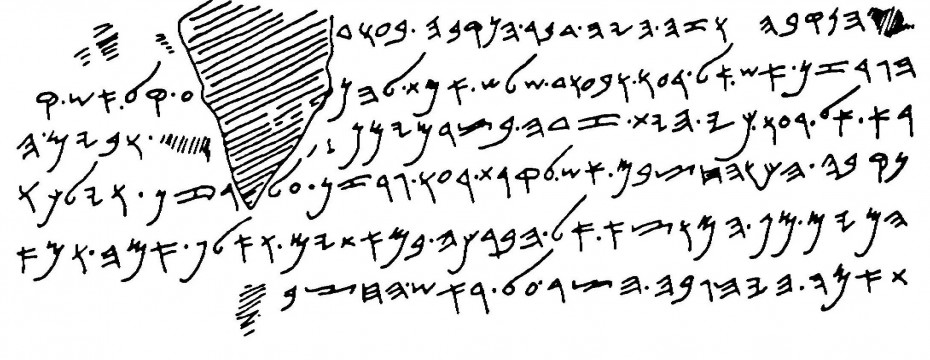 𐤄𐤍𐤒𐤁𐤄 𐤅𐤆𐤄.𐤄𐤉𐤄.𐤃𐤁𐤓.𐤄𐤍𐤒𐤁𐤄.𐤁𐤏𐤅𐤃
𐤄𐤂𐤓𐤆𐤍.𐤀𐤔.𐤀𐤋.𐤓𐤏𐤅.𐤅𐤁𐤏𐤅𐤃.𐤔𐤋𐤔.𐤀𐤌𐤕.𐤋𐤄𐤍 𐤏.𐤒𐤋.𐤀𐤔.𐤒
𐤓𐤀.𐤀𐤋.𐤓𐤏𐤅.𐤊𐤉.𐤄𐤉𐤕.𐤆𐤃𐤄.𐤁𐤑𐤓.𐤌𐤉𐤌𐤍 𐤅𐤁𐤉𐤌.𐤄
𐤍𐤒𐤁𐤄.𐤄𐤊𐤅.𐤄𐤇𐤑𐤁𐤌.𐤀𐤔.𐤋𐤒𐤓𐤕.𐤓𐤏𐤅.𐤂𐤓𐤆𐤍.𐤏𐤋.𐤂𐤓𐤆𐤍.𐤅𐤉𐤋𐤊𐤅
𐤄𐤌𐤉𐤌.𐤌𐤍.𐤄𐤌𐤅𐤑𐤀.𐤀𐤋.𐤄𐤁𐤓𐤊𐤄.𐤁𐤌𐤀𐤕𐤉𐤌.𐤅𐤀𐤋𐤐.𐤀𐤌𐤄.𐤅𐤌𐤀
𐤕.𐤀𐤌𐤄.𐤄𐤉𐤄.𐤂𐤁𐤄.𐤄𐤑𐤓.𐤏𐤋.𐤓𐤀𐤔.𐤄𐤇𐤑𐤁